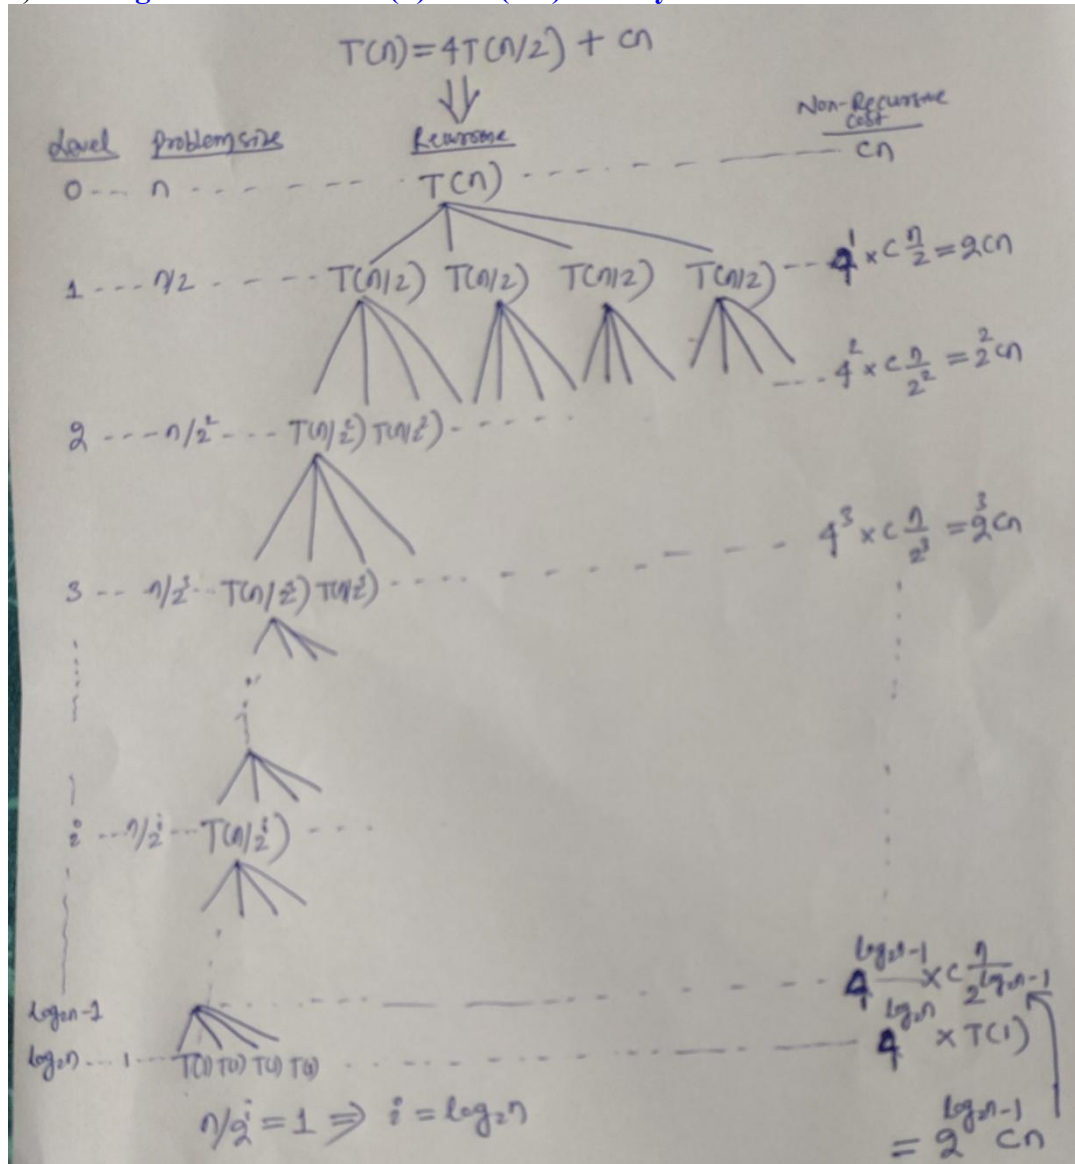 T(n)=4T(n/2) + cn
Level Problem size Recursive Non-Recursive cost
0 --- n - - - - - - - T(n) - - - - - - - cn
1 --- n/2 - - - - T(n/2) T(n/2) T(n/2) T(n/2) --- 4¹ × c n/2 = 2cn
--- 4² × c n/2² = 2²cn
2 ---- n/2² ---- T(n/2²) T(n/2²) - - - - -
3 -- n/2³ -- T(n/2³) T(n/2³) - - - - - - - 4³ × c n/2³ = 2³cn
i --- n/2ⁱ --- T(n/2ⁱ) - - - -
log₂n-1 - - - - - - 4^(log₂n-1) × c n/2^(log₂n-1)
log₂n --- 1 --- T(1) T(1) T(1) T(1) - - - - - - 4^(log₂n) × T(1)
n/2ⁱ = 1 ⇒ i = log₂n
= 2^(log₂n-1) cn